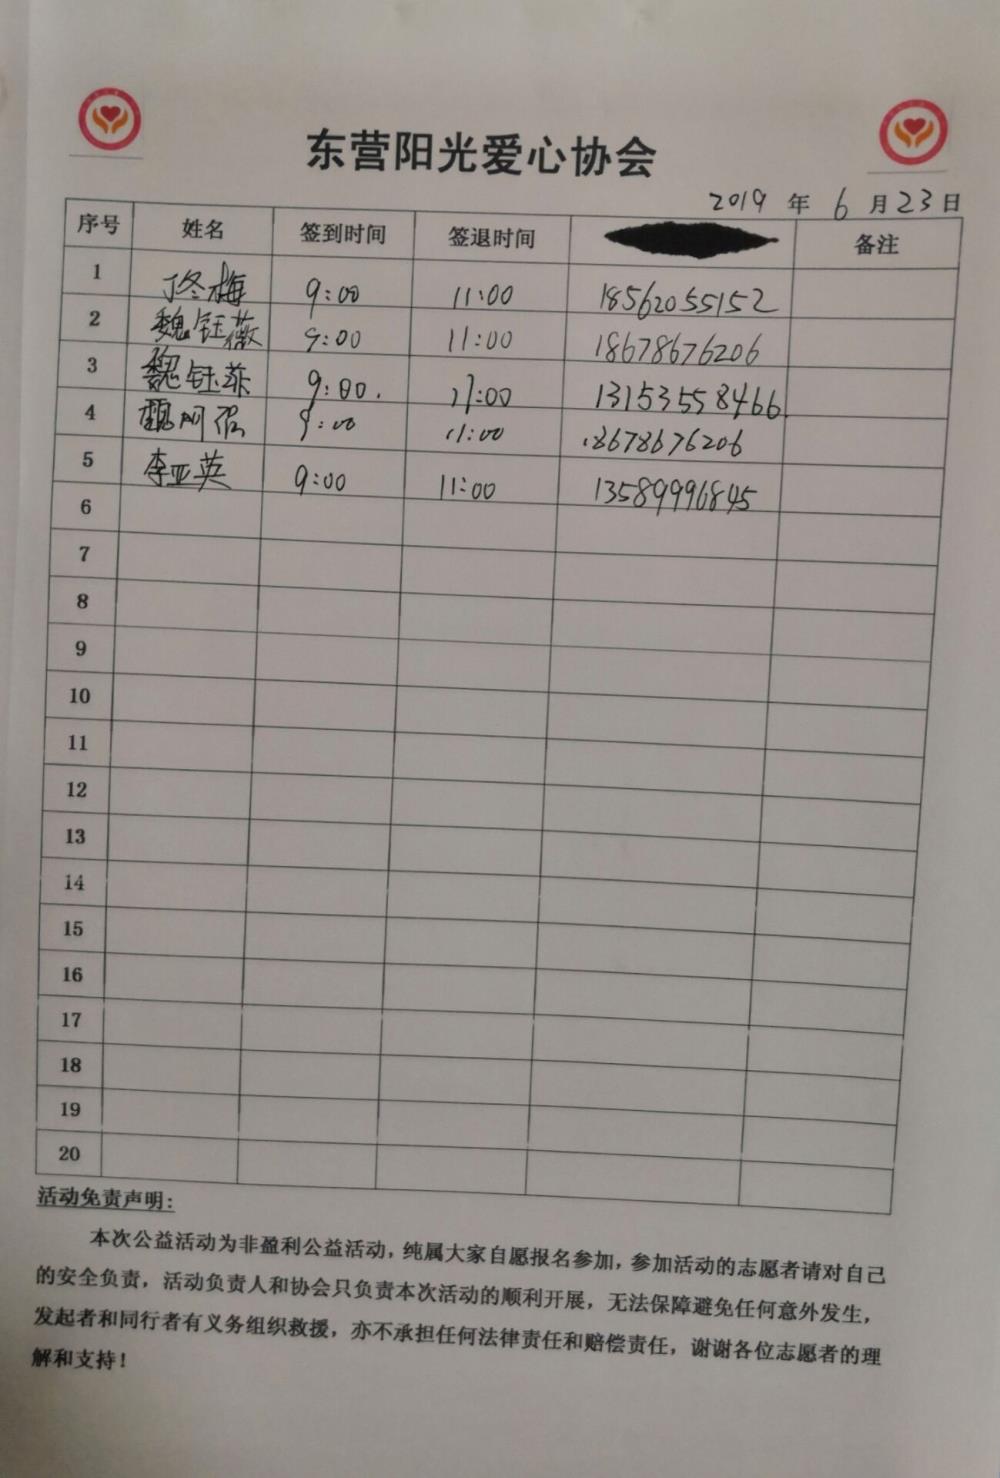 东营阳光爱心协会
2019 年 6 月 23 日
序号 姓名 签到时间 签退时间 备注
1 丁冬梅 9:00 11:00 18562055152
2 魏钰薇 9:00 11:00 18678676206
3 魏钰 9:00. 11:00 13153558466.
4 魏 9:00 11:00 18678676206
5 李亚英 9:00 11:00 13589996845
6
7
8
9
10
11
12
13
14
15
16
17
18
19
20
活动免责声明:
本次公益活动为非盈利公益活动，纯属大家自愿报名参加，参加活动的志愿者请对自己
的安全负责，活动负责人和协会只负责本次活动的顺利开展，无法保障避免任何意外发生，
发起者和同行者有义务组织救援，亦不承担任何法律责任和赔偿责任，谢谢各位志愿者的理
解和支持！